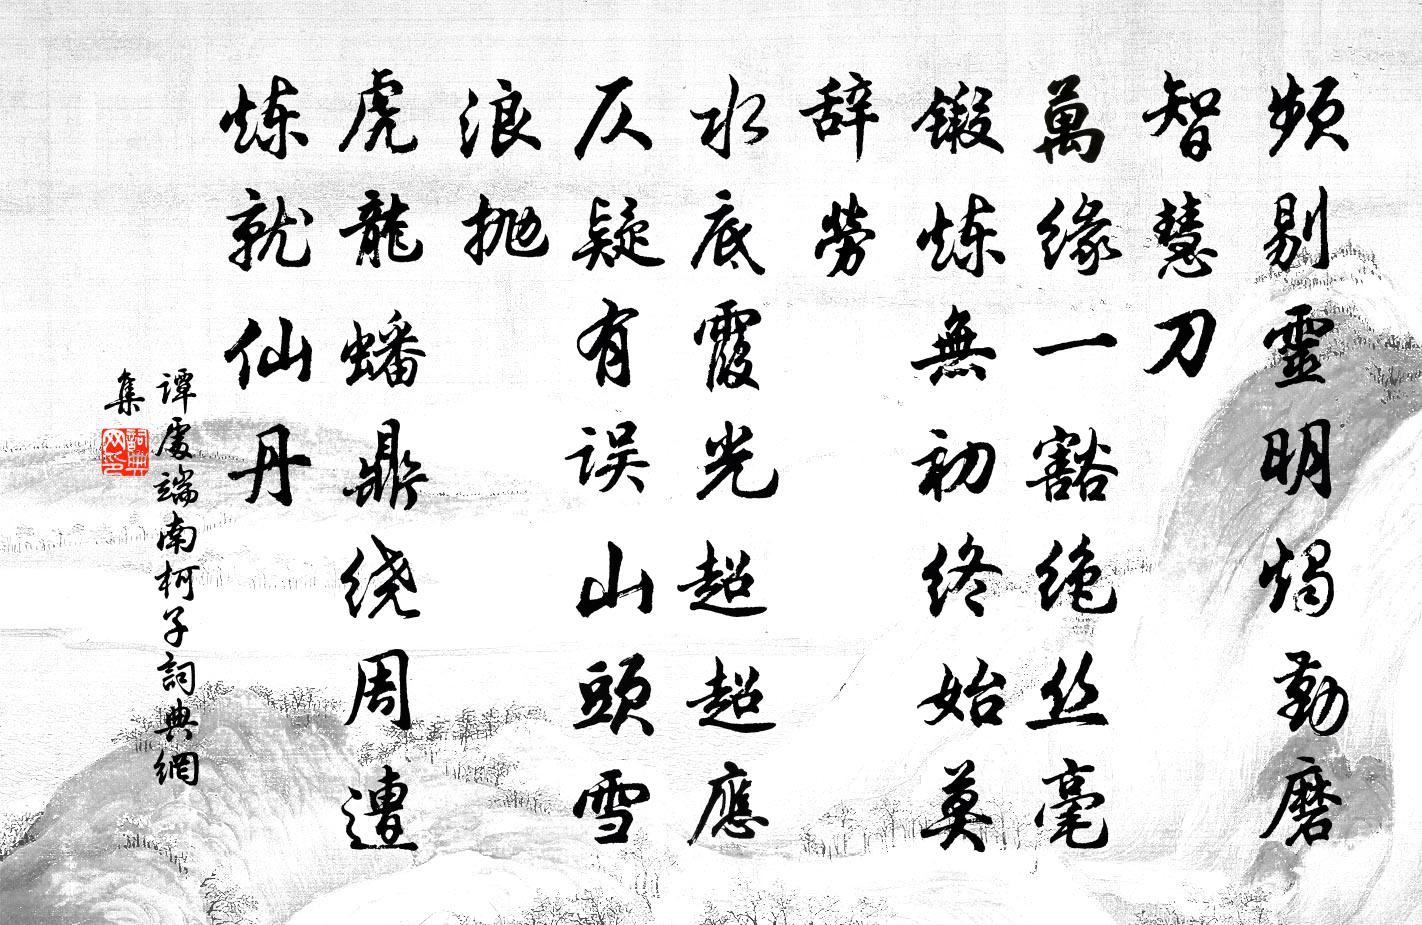 频剔靈明燭勤磨
智慧刀
萬缘一豁绝丝毫
锻炼無初终始莫
辞勞
水底霞光超超應
仄疑有误山頭雪
浪抛
虎龍蟠鼎绕周遭
炼就仙丹
谭處端南柯子詞典網
集
詞典
网印